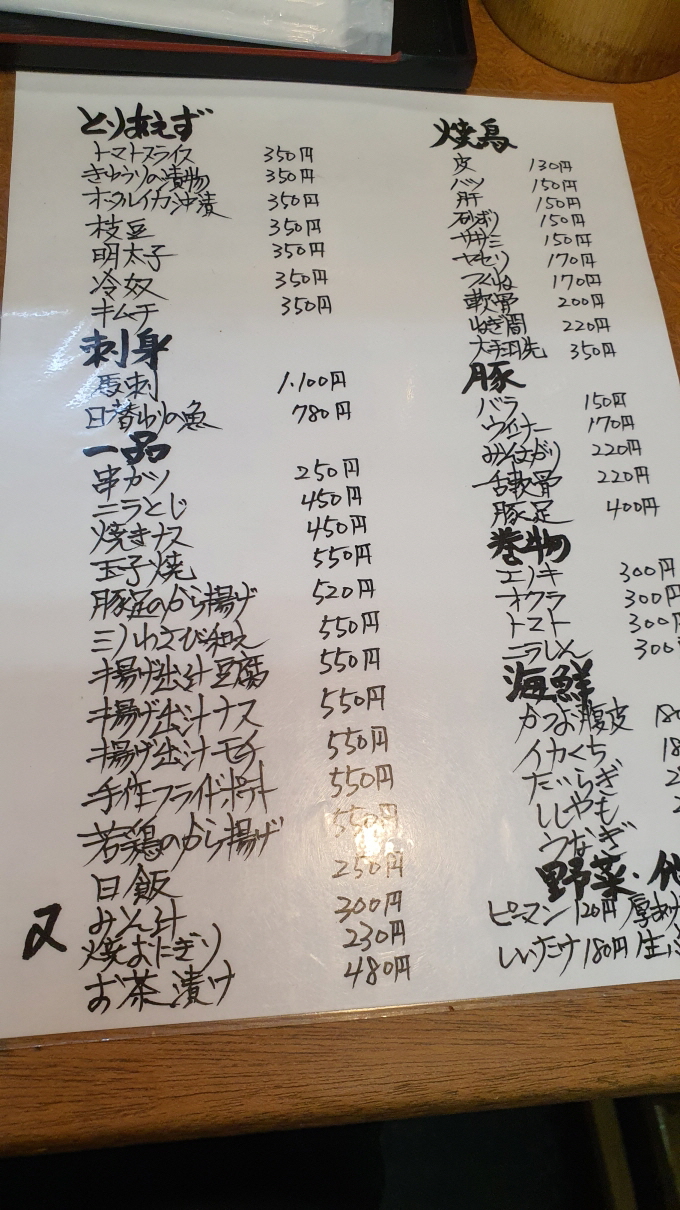 とりあえず
トマトスライス 350円
きゅうりの漬物 350円
ホタルイカ沖漬 350円
枝豆 350円
明太子 350円
冷奴 350円
キムチ 350円
刺身
馬刺 1.100円
日替わりの魚 780円
一品
串カツ 250円
ニラとじ 450円
焼きナス 450円
玉子焼 550円
豚足のから揚げ 520円
三ノわさび和え 550円
揚げ出汁豆腐 550円
揚げ出汁ナス 550円
揚げ出汁モチ 550円
手作フライドポテト 550円
若鶏のから揚げ 550円
白飯 250円
みそ汁 300円
焼おにぎり 230円
お茶漬け 480円
焼鳥
皮 130円
ハツ 150円
肝 150円
砂ズリ 150円
ササミ 150円
ヤセリ 170円
つくね 170円
軟骨 200円
ねぎ間 220円
大手羽先 350円
豚
バラ 150円
ウインナー 170円
みそさがり 220円
舌軟骨 220円
豚足 400円
巻物
エノキ 300円
オクラ 300円
トマト 300
ニラしそ 300
海鮮
かつお腹皮 180
イカくち 18
たいらぎ 2
ししゃも 2
うなぎ
野菜・他
ピーマン 120円 厚あげ
しいたけ 180円 生
又